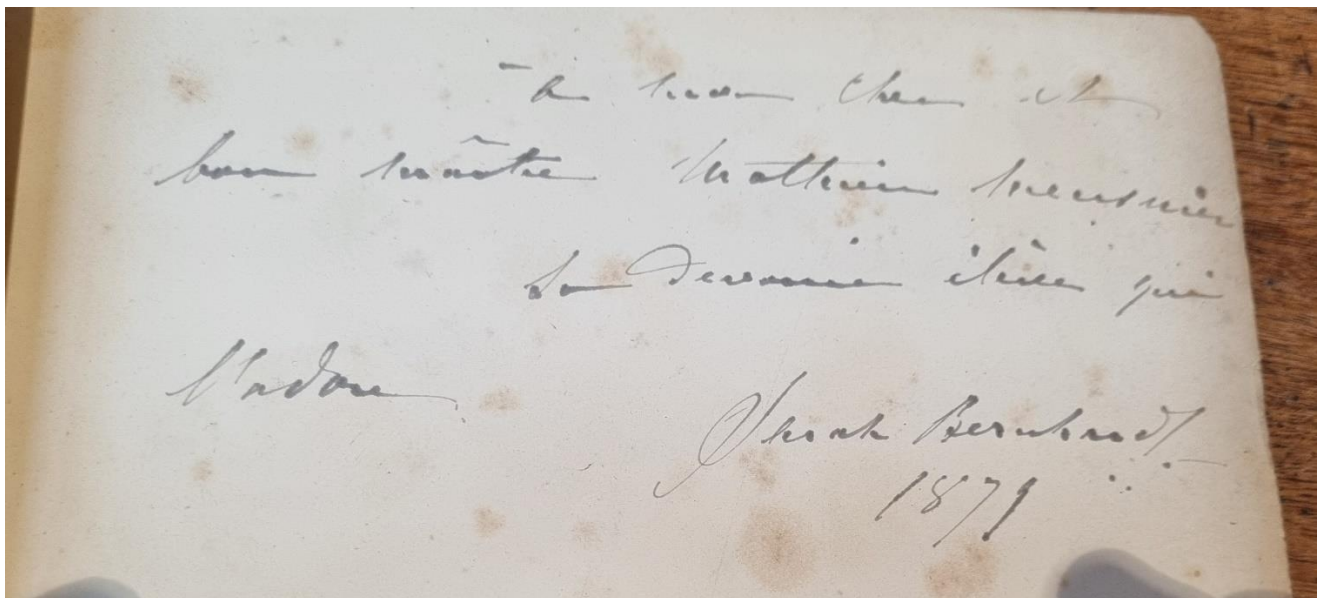 à mon cher et
bon maître Mathieu Meusnier
sa dévouée élève qui
l'adore
Sarah Bernhardt
1879